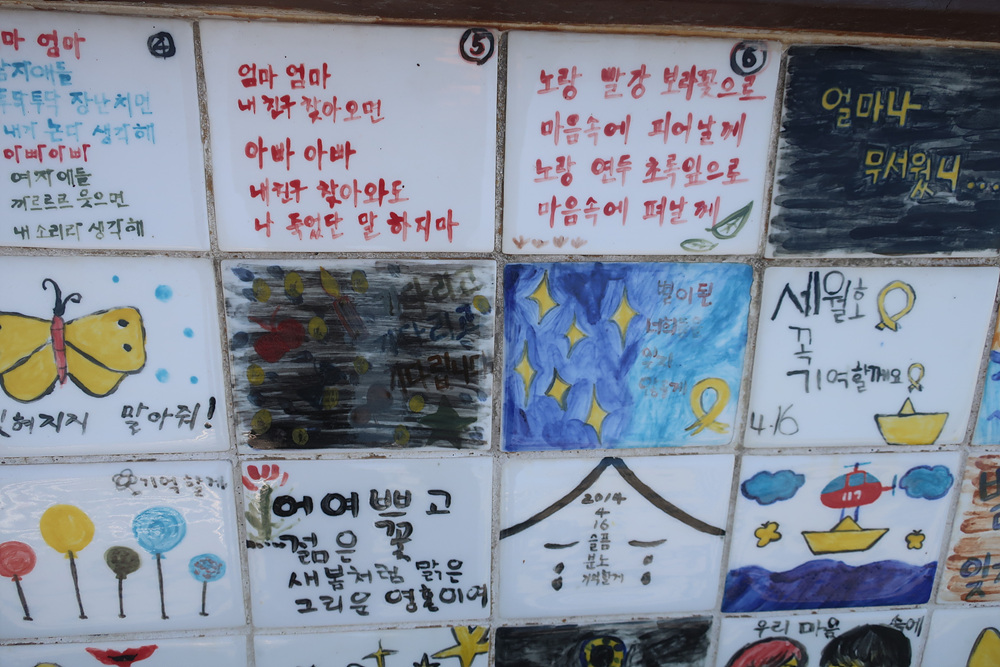 마 엄마
④
남자애들
장난치면
내가 논다 생각해
아빠아빠
여자애들
까르르르 웃으면
내 소리라 생각해
⑤
엄마 엄마
내 친구 찾아오면
아빠 아빠
내 친구 찾아와도
나 죽었단 말 하지마
⑥
노랑 빨강 보라꽃으로
마음속에 피어날게
노랑 연두 초록잎으로
마음속에 펴날게
얼마나
무서웠니...
혀지지 말아줘!
별이 된
세월호
꼭
기억할께요
4.16
기억할게
어여쁘고
젊은 꽃
새봄처럼 맑은
그리운 영혼이여
2014
4
16
슬픔
분노
117
우리 마음 속에